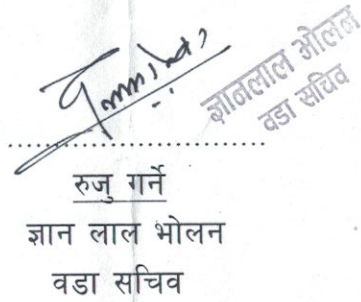 ज्ञानलाल भोलन
वडा सचिव
रुजु गर्ने
ज्ञान लाल भोलन
वडा सचिव